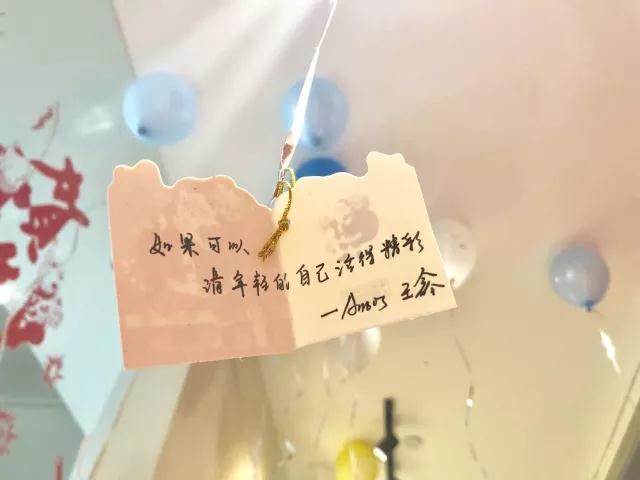 如果可以
请年轻的自己活得精彩
—Amos 王鑫